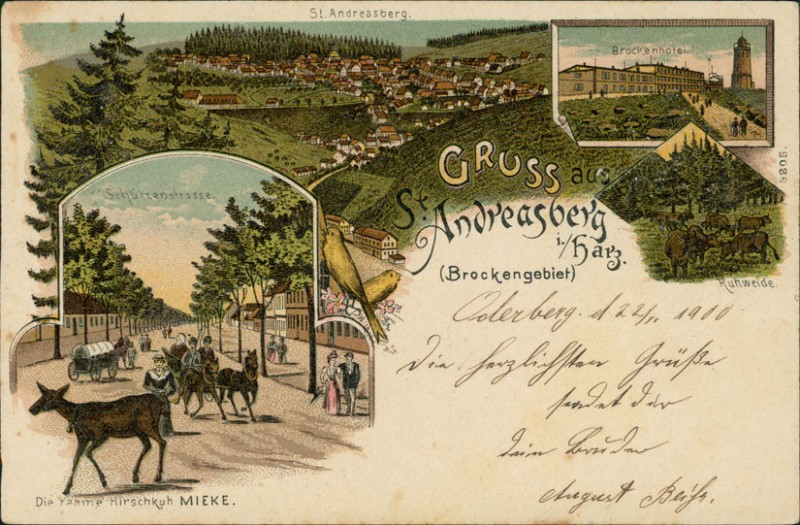 St. Andreasberg.
Brockenhotel
9205.
Schützenstrasse.
GRUSS aus
St. Andreasberg
i/Harz.
(Brockengebiet)
Kuhweide.
Oderberg. d 22/11 1900
Die herzlichsten Grüße
sendet dir
dein Bruder
August
Die zahme Hirschkuh MIEKE.